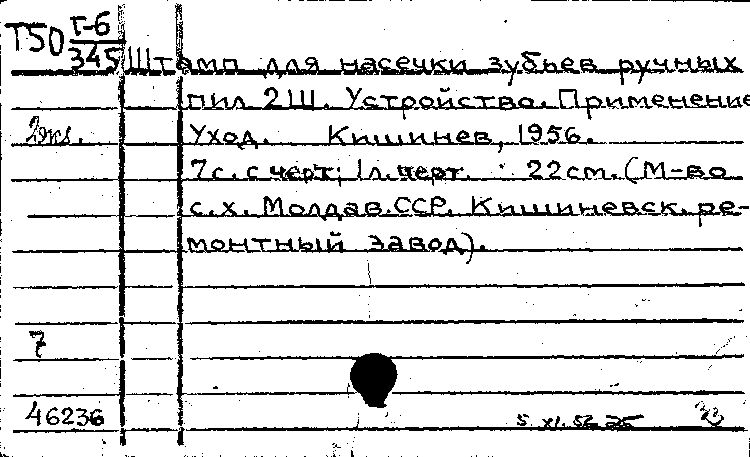 Т50 Г-6
345 Штамп для насечки зубьев ручных
пил 2Ш. Устройство. Применение
2экз. Уход. Кишинев, 1956.
7с. с черт; 1л. черт. 22см. (М-во
с.х. Молдав.ССР. Кишиневск. ре-
монтный завод).
7
46236
5. XI. 56